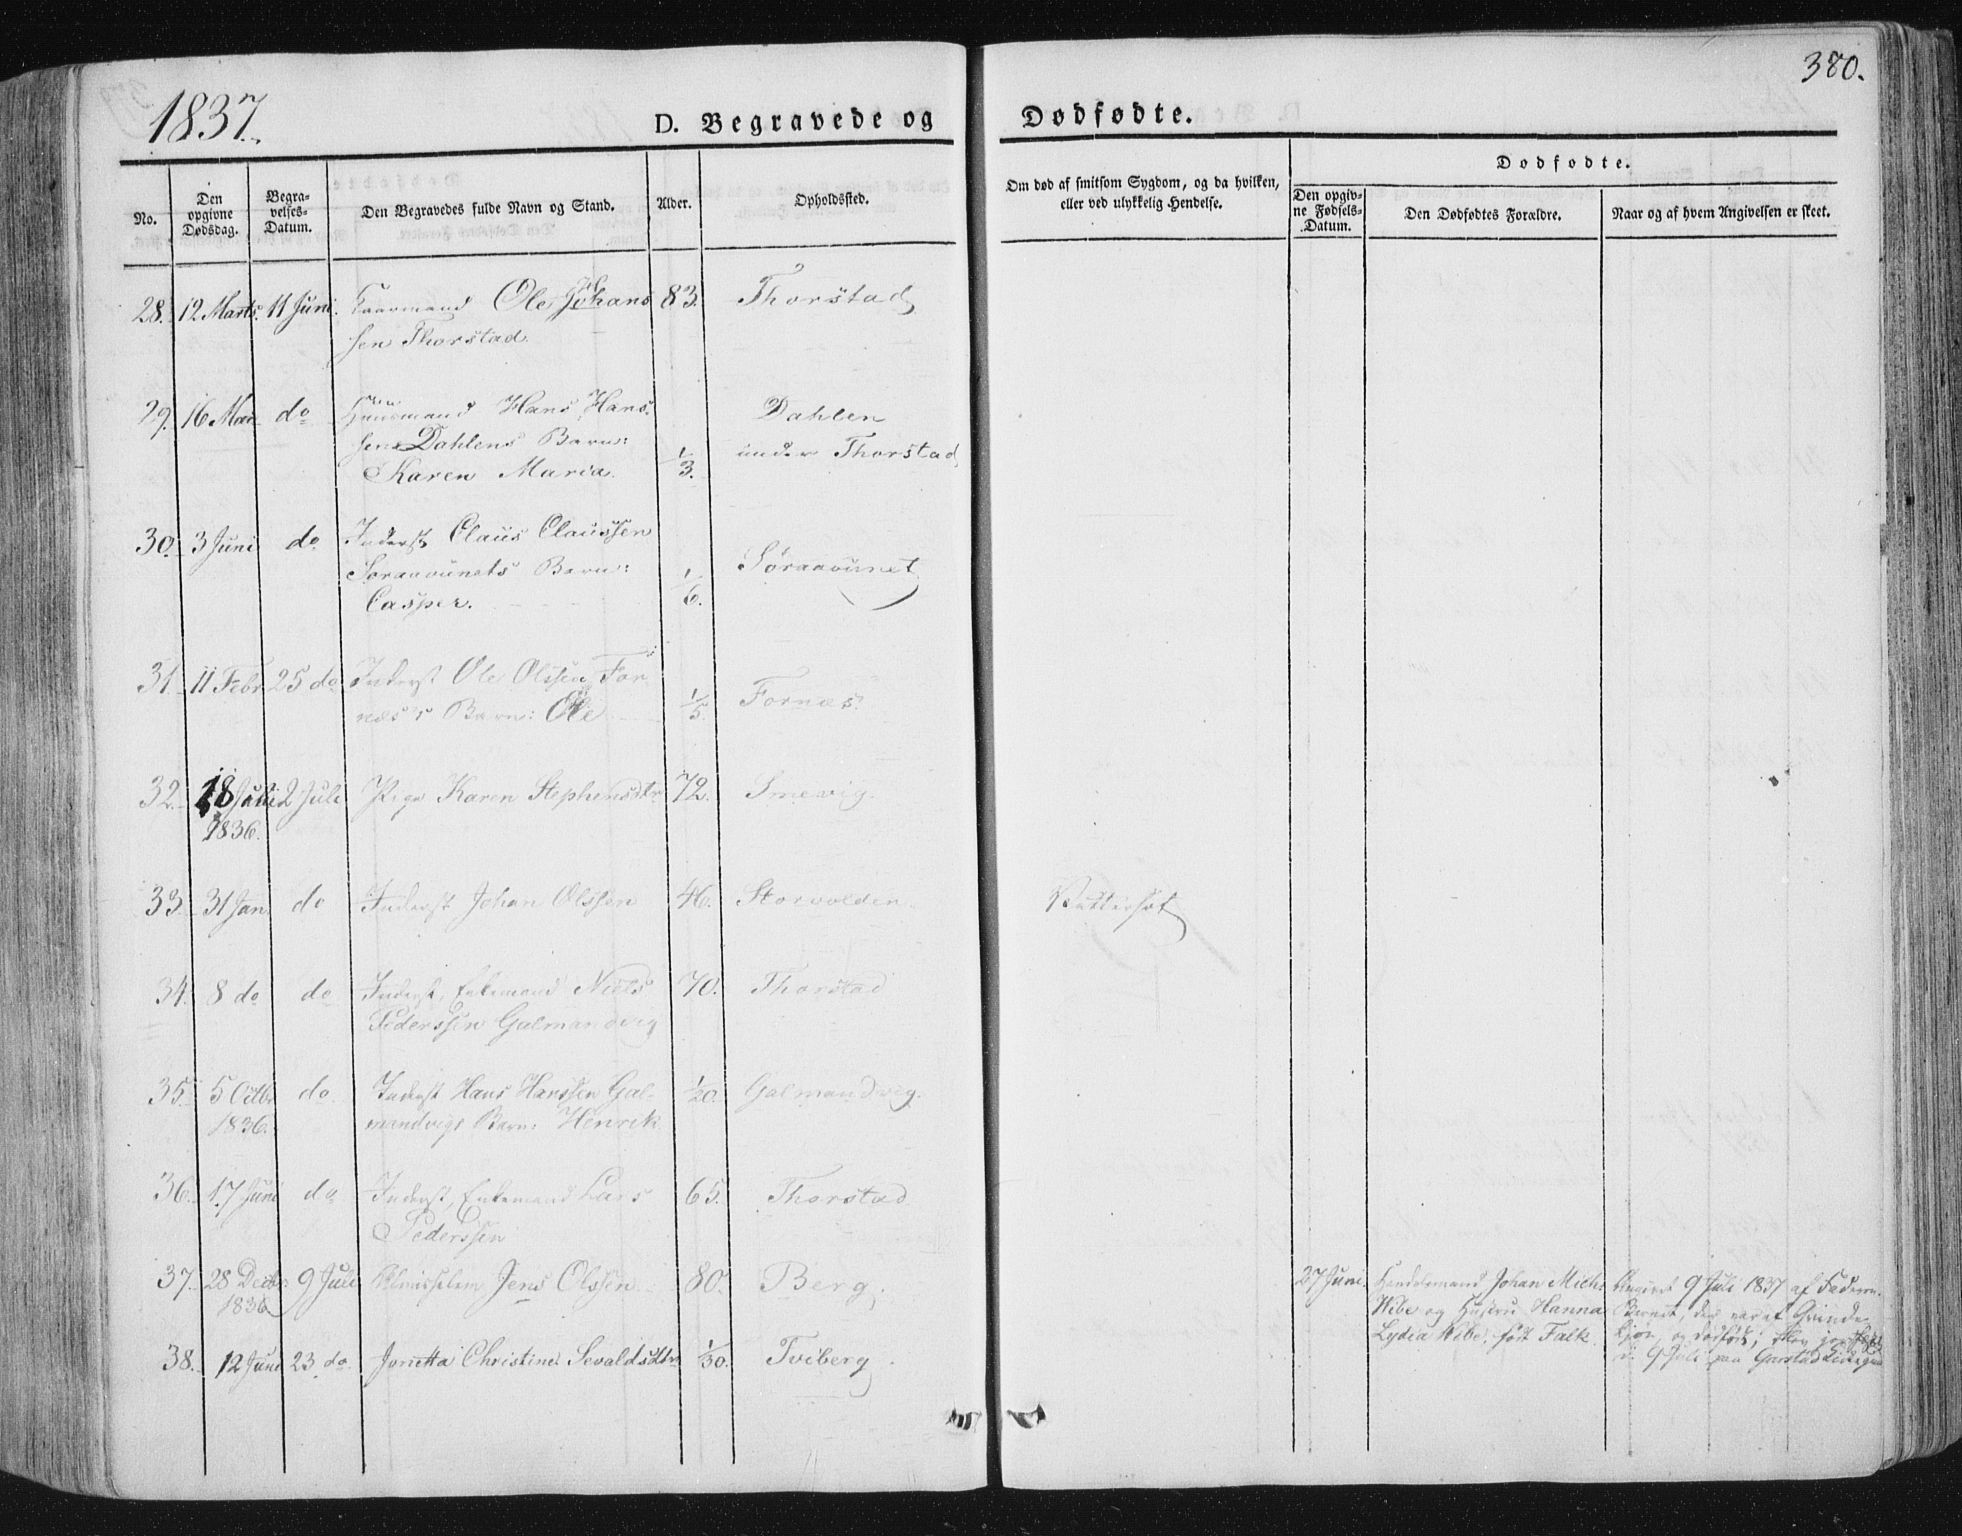 380.
1837.
D. Begravede og Dødfødte.
No.
Den opgivne Dødsdag.
Begravelses-Datum.
Den Begravedes fulde Navn og Stand.
Alder.
Opholdssted.
Om død af smitsom Sygdom, og da hvilken,
eller ved ulykkelig Hendelse.
Dødfødte.
Den opgivne Fødsels-Datum.
Den Dødfødtes Forældre.
Naar og af hvem Angivelsen er skeet.
28. 12 Marts. 11 Juni. Kaarmand Ole Johans 83. Thorstad
sen Thorstad.
29. 16 Mai do Huusmand Hans Hans Dahlen
sen Dahlens Barn: under Thorstad
Karen Maria. 1/3.
30. 3 Juni do Inderst Claus Claussen
Søraavunets Barn: Søraavunet
Casper. 1/6.
31. 11 Febr 25 do Inderst Ole Olssen For
næs's Barn: Ole 1/5. Fornæs.
32. 18 2 Juli Pige Karen Stephensdtr 72. Smevig.
1836.
33. 31 Jan do Inderst Johan Olssen 46. Storvolden.
34. 8 do do Inderst, Enkemand Niels 70. Thorstad
Pederssen Galmandvig
35. 5 Octbr do Inderst Hans Hanssen Gal- 1/20. Galmandvig.
1836. mandvigs Barn: Henrik
36. 17 Juni do Inderst, Enkemand Lars 65. Thorstad
Pederssen
37. 28 Decbr 9 Juli Almisselem Jens Olssen 80. Berg. 27 Juni. Handelsmand Johan Mich. Angivet 9 Juli 1837 af Faderen.
1836 Wibe og Hustru Hanna Barnet, der var af Qvinde
Lydia Wibe, født Falk kjøn, og dødfødt;
38. 12 Juni 23 do Jonetta Christine Sevaldsdtr 1/30. Tviberg. 9 Juli paa